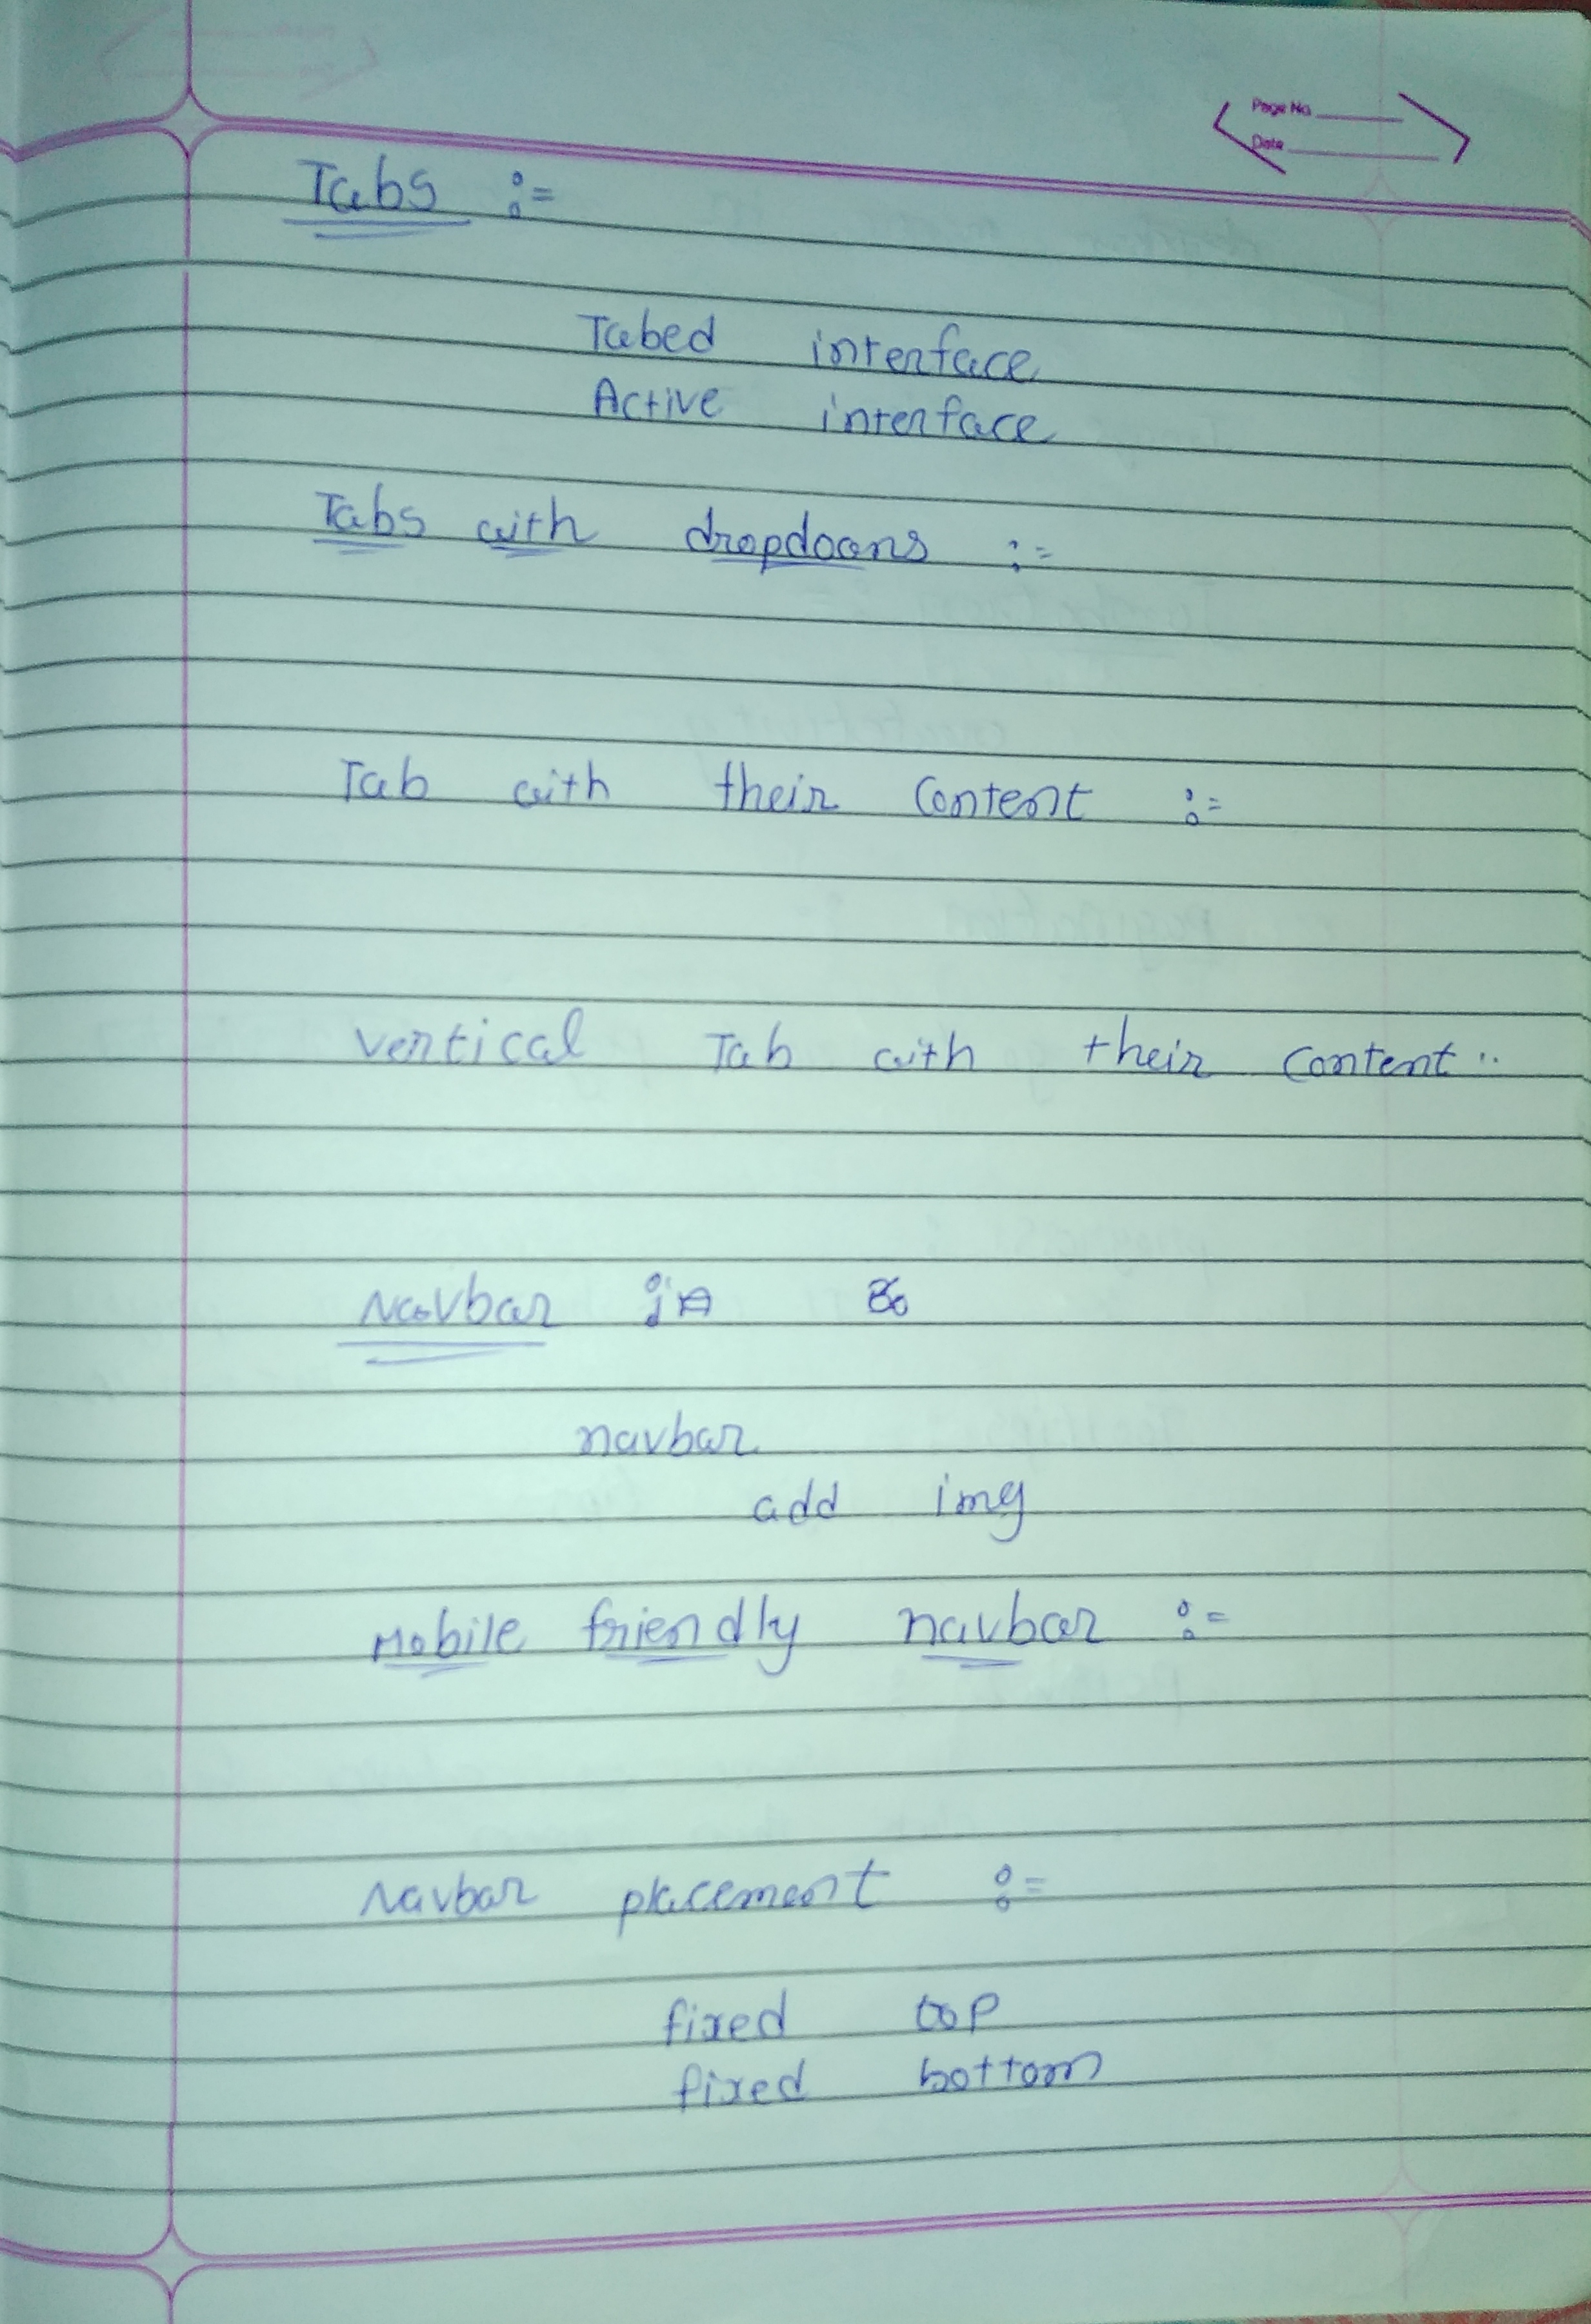 Page No.
Date
Tabs :=
Tabed interface
Active interface
Tabs with dropdoons :=
Tab with their Content :=
vertical Tab with their Content ..
Navbar :=
navbar
add img
Mobile friendly navbar :=
Navbar placement :=
fixed top
fixed bottom